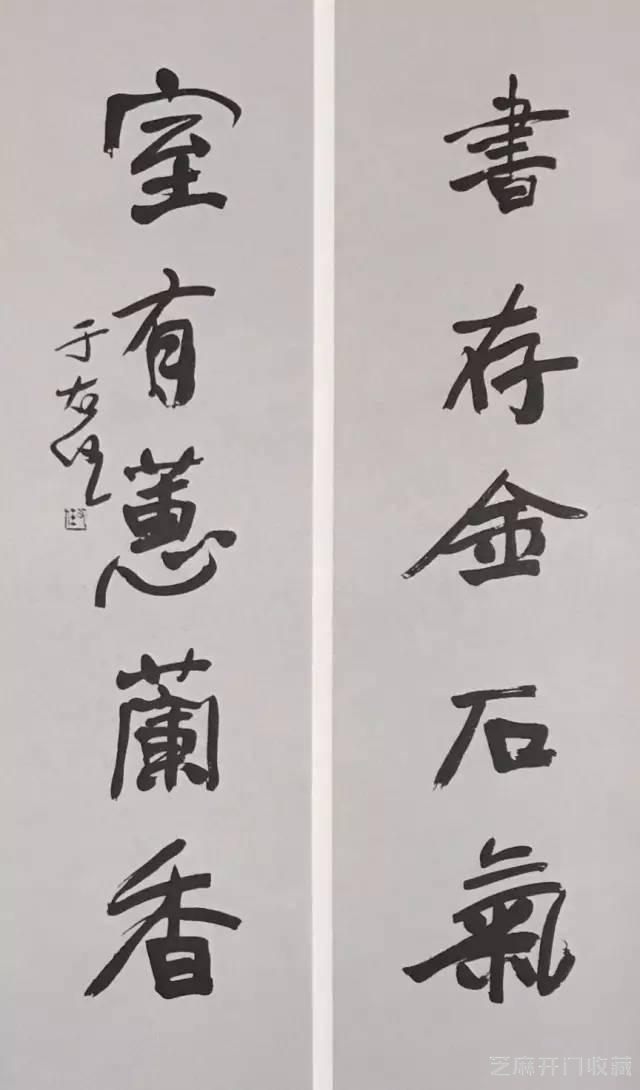 書存金石氣
室有蕙蘭香
于右任
芝麻开门收藏